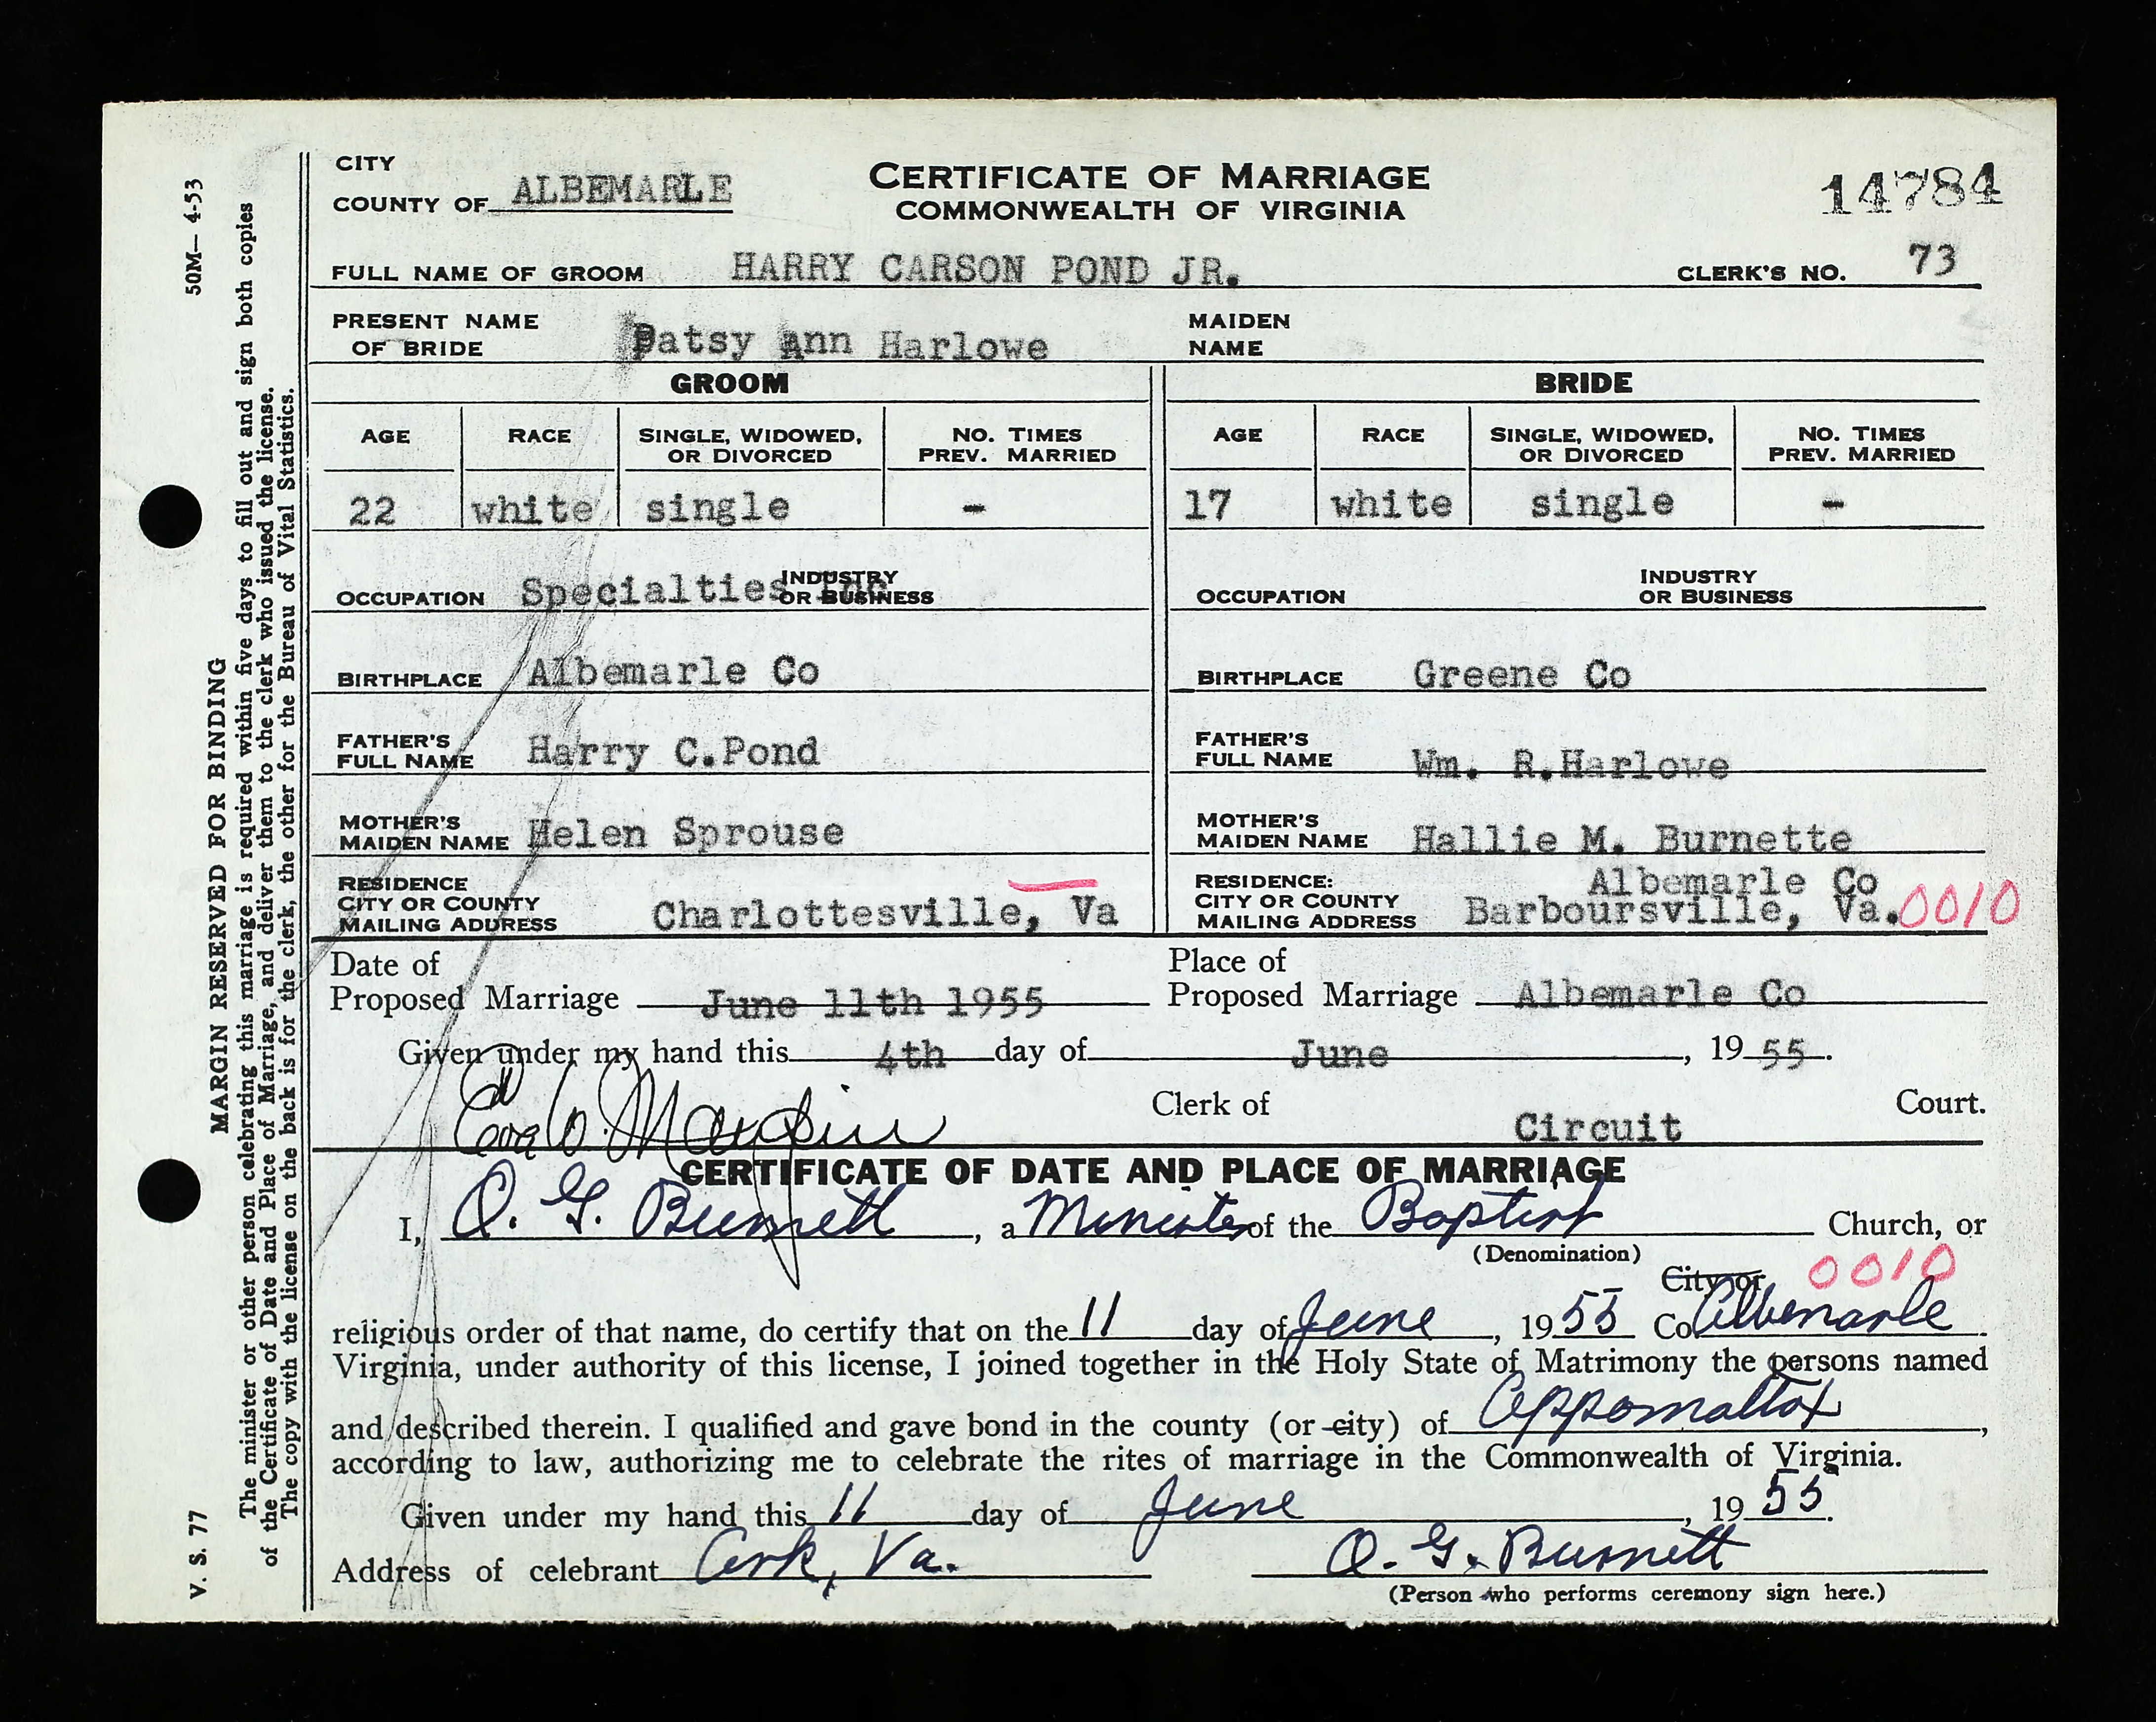 CITY
COUNTY OF ALBEMARLE
CERTIFICATE OF MARRIAGE
COMMONWEALTH OF VIRGINIA
14784
FULL NAME OF GROOM HARRY CARSON POND JR. CLERK'S NO. 73
PRESENT NAME OF BRIDE Patsy Ann Harlowe MAIDEN NAME
GROOM BRIDE
AGE RACE SINGLE, WIDOWED, OR DIVORCED NO. TIMES PREV. MARRIED AGE RACE SINGLE, WIDOWED, OR DIVORCED NO. TIMES PREV. MARRIED
22 white single - 17 white single -
OCCUPATION Specialties Inc INDUSTRY OR BUSINESS OCCUPATION INDUSTRY OR BUSINESS
BIRTHPLACE Albemarle Co BIRTHPLACE Greene Co
FATHER'S FULL NAME Harry C.Pond FATHER'S FULL NAME Wm. R.Harlowe
MOTHER'S MAIDEN NAME Helen Sprouse MOTHER'S MAIDEN NAME Hallie M. Burnette
RESIDENCE RESIDENCE: Albemarle Co
CITY OR COUNTY CITY OR COUNTY
MAILING ADDRESS Charlottesville, Va MAILING ADDRESS Barboursville, Va. 0010
Date of Place of
Proposed Marriage June 11th 1955 Proposed Marriage Albemarle Co
Given under my hand this 4th day of June, 19 55.
Eva W. Maupin Clerk of Circuit Court.
CERTIFICATE OF DATE AND PLACE OF MARRIAGE
I, O. G. Burnett, a Minister of the Baptist Church, or
(Denomination)
City or 0010
religious order of that name, do certify that on the 11 day of June, 1955 Co Albemarle.
Virginia, under authority of this license, I joined together in the Holy State of Matrimony the persons named
and described therein. I qualified and gave bond in the county (or city) of Appomattox,
according to law, authorizing me to celebrate the rites of marriage in the Commonwealth of Virginia.
Given under my hand this 11 day of June, 19 55.
Address of celebrant Ark, Va. O. G. Burnett
(Person who performs ceremony sign here.)
V. S. 77 50M—4-53
MARGIN RESERVED FOR BINDING
The minister or other person celebrating this marriage is required within five days to fill out and sign both copies
of the Certificate of Date and Place of Marriage, and deliver them to the clerk who issued the license.
The copy with the license on the back is for the clerk, the other for the Bureau of Vital Statistics.